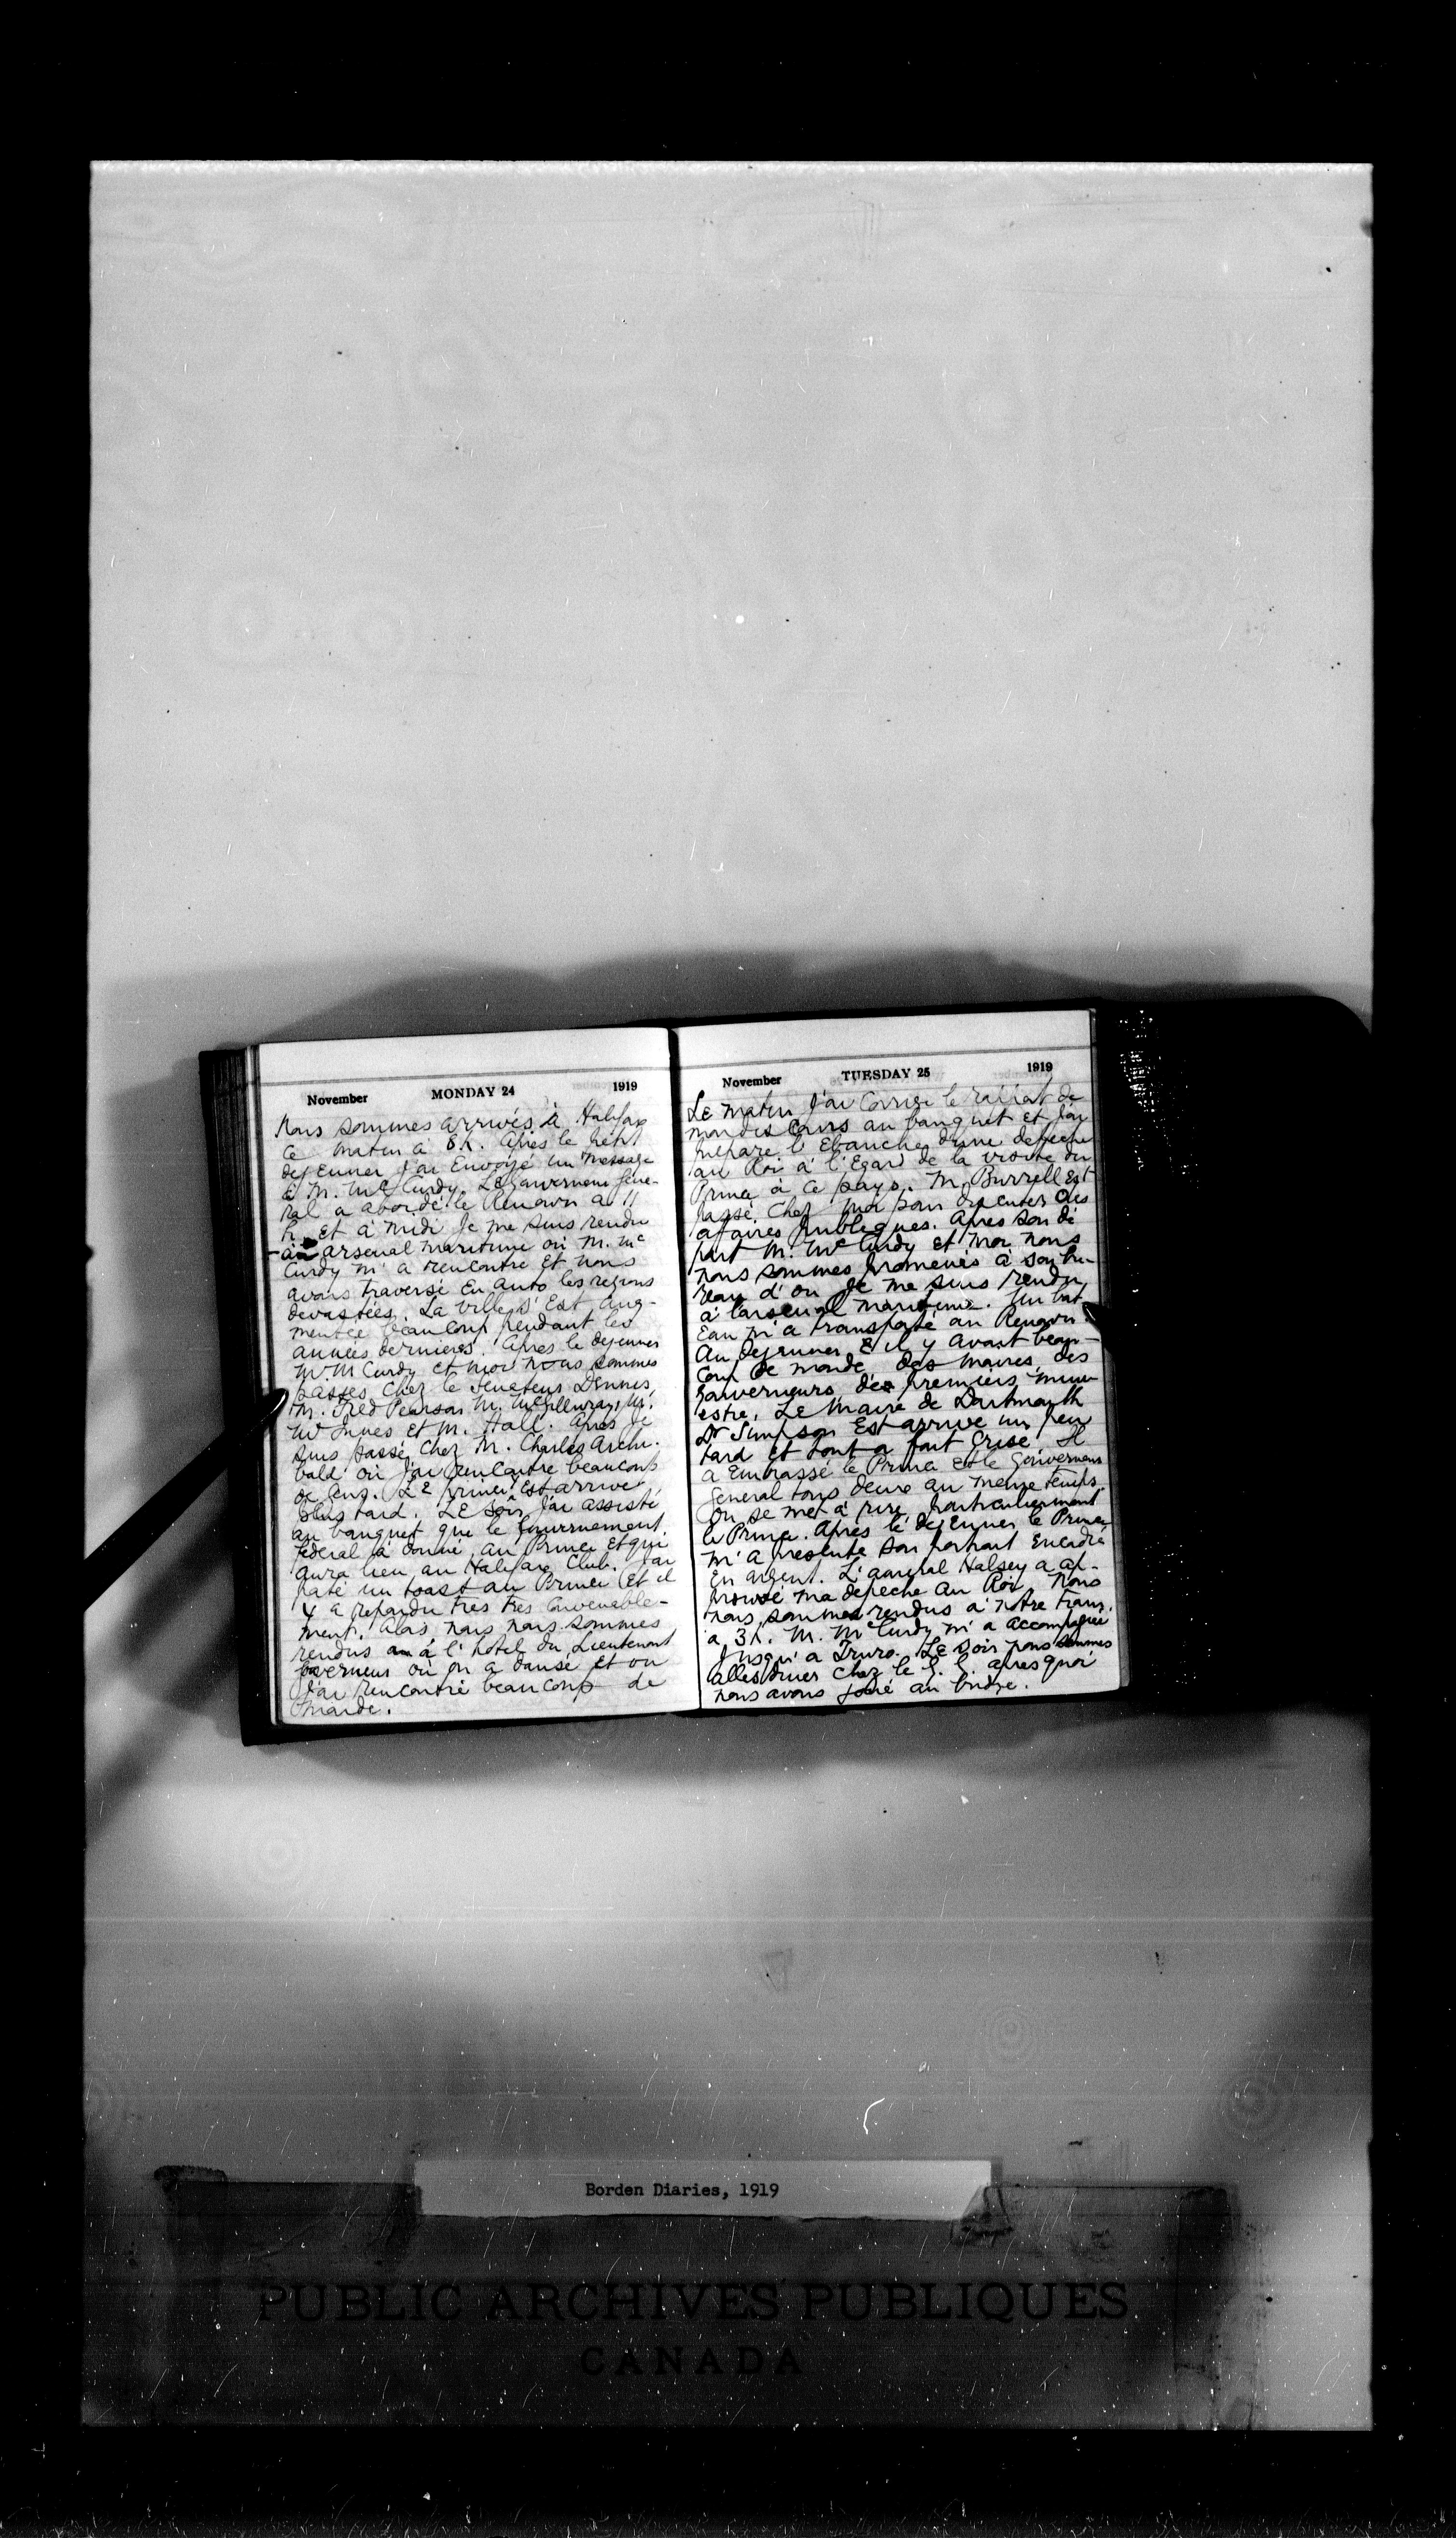 November MONDAY 24 1919
Nous sommes arrivés à Halifax
ce matin à 8h. Après le petit
dejeuner j'ai envoyé un message
à M. McCurdy. Le gouverneur géné-
ral a abordé le Renown à 11
h. et à midi je me suis rendu
arsenal maritime où M. Mc
Curdy m'a rencontré et nous
avons traversé en auto les regions
devastées. La ville s'est aug-
mentée beaucoup pendant les
années dernieres. Après le dejeuner
Mr McCurdy et moi nous sommes
passés chez le Senateur Dennis,
M. Fred Pearson M. McGillivray, M.
McInnes et M. Hall. Après je
suis passé chez M. Charles Archi-
bald où j'ai rencontré beaucoup
de gens. Le prince est arrivé
plus tard. Le soir j'ai assisté
au banquet que le gouvernement
federal a donné au Prince et qui
aura lieu au Halifax Club. J'ai
un toast au Prince et il
y a repondu tres tres convenable-
ment. nous nous sommes
rendus à l'hotel du Lieutenant
Gouverneur où on a dansé et où
j'ai rencontré beaucoup de
monde.
November TUESDAY 25 1919
Le matin j'ai corrigé le rapport de
mon discours au banquet et j'ai
préparé l'ébauche d'une depeche
au Roi à l'egard de la visite du
Prince à ce pays. M. Burrell est
passé chez moi pour discuter des
affaires publiques. Après son dé
part M. McCurdy et moi nous
nous sommes promenés à son bu-
reau d'ou je me suis rendu
à l'arsenal maritime. Un bat
eau m'a transporté au Renown.
Au dejeuner il y avait beau-
coup de monde, des maires, des
gouverneurs, des premiers mini
estre. Le Maire de Dartmouth
Dr Simpson est arrivé un peu
tard et tout a fait grisé. Il
a embrassé le Prince et le Gouverneur
General tous deux au meme temps.
On se met à rire, particulierment
le Prince. Après le dejeuner le Prince
m'a presenté son portrait encadré
en argent. L'amiral Halsey a ap-
prouvé ma depeche au Roi. Nous
nous sommes rendus à notre train
à 3h. M. McCurdy m'a accompagné
jusqu'à Truro. Le soir nous sommes
alles diner chez le G. G. apres quoi
nous avons joué au bridge.
Borden Diaries, 1919
PUBLIC ARCHIVES PUBLIQUES
CANADA